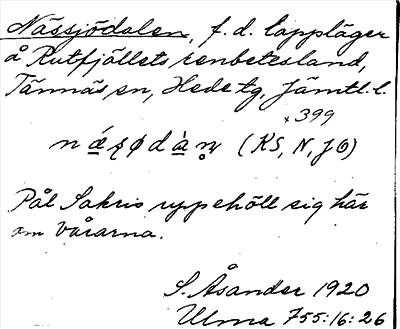 Nässjödalen, f. d. lappläger
å Rutfjällets renbetesland,
Tännäs sn, Hede tg, Jämtl. l.
× 399
(KS, N, JO)
Pål Sakris uppehöll sig här
om vårarna.
S. Åsander 1920
Ulma 755:16:26